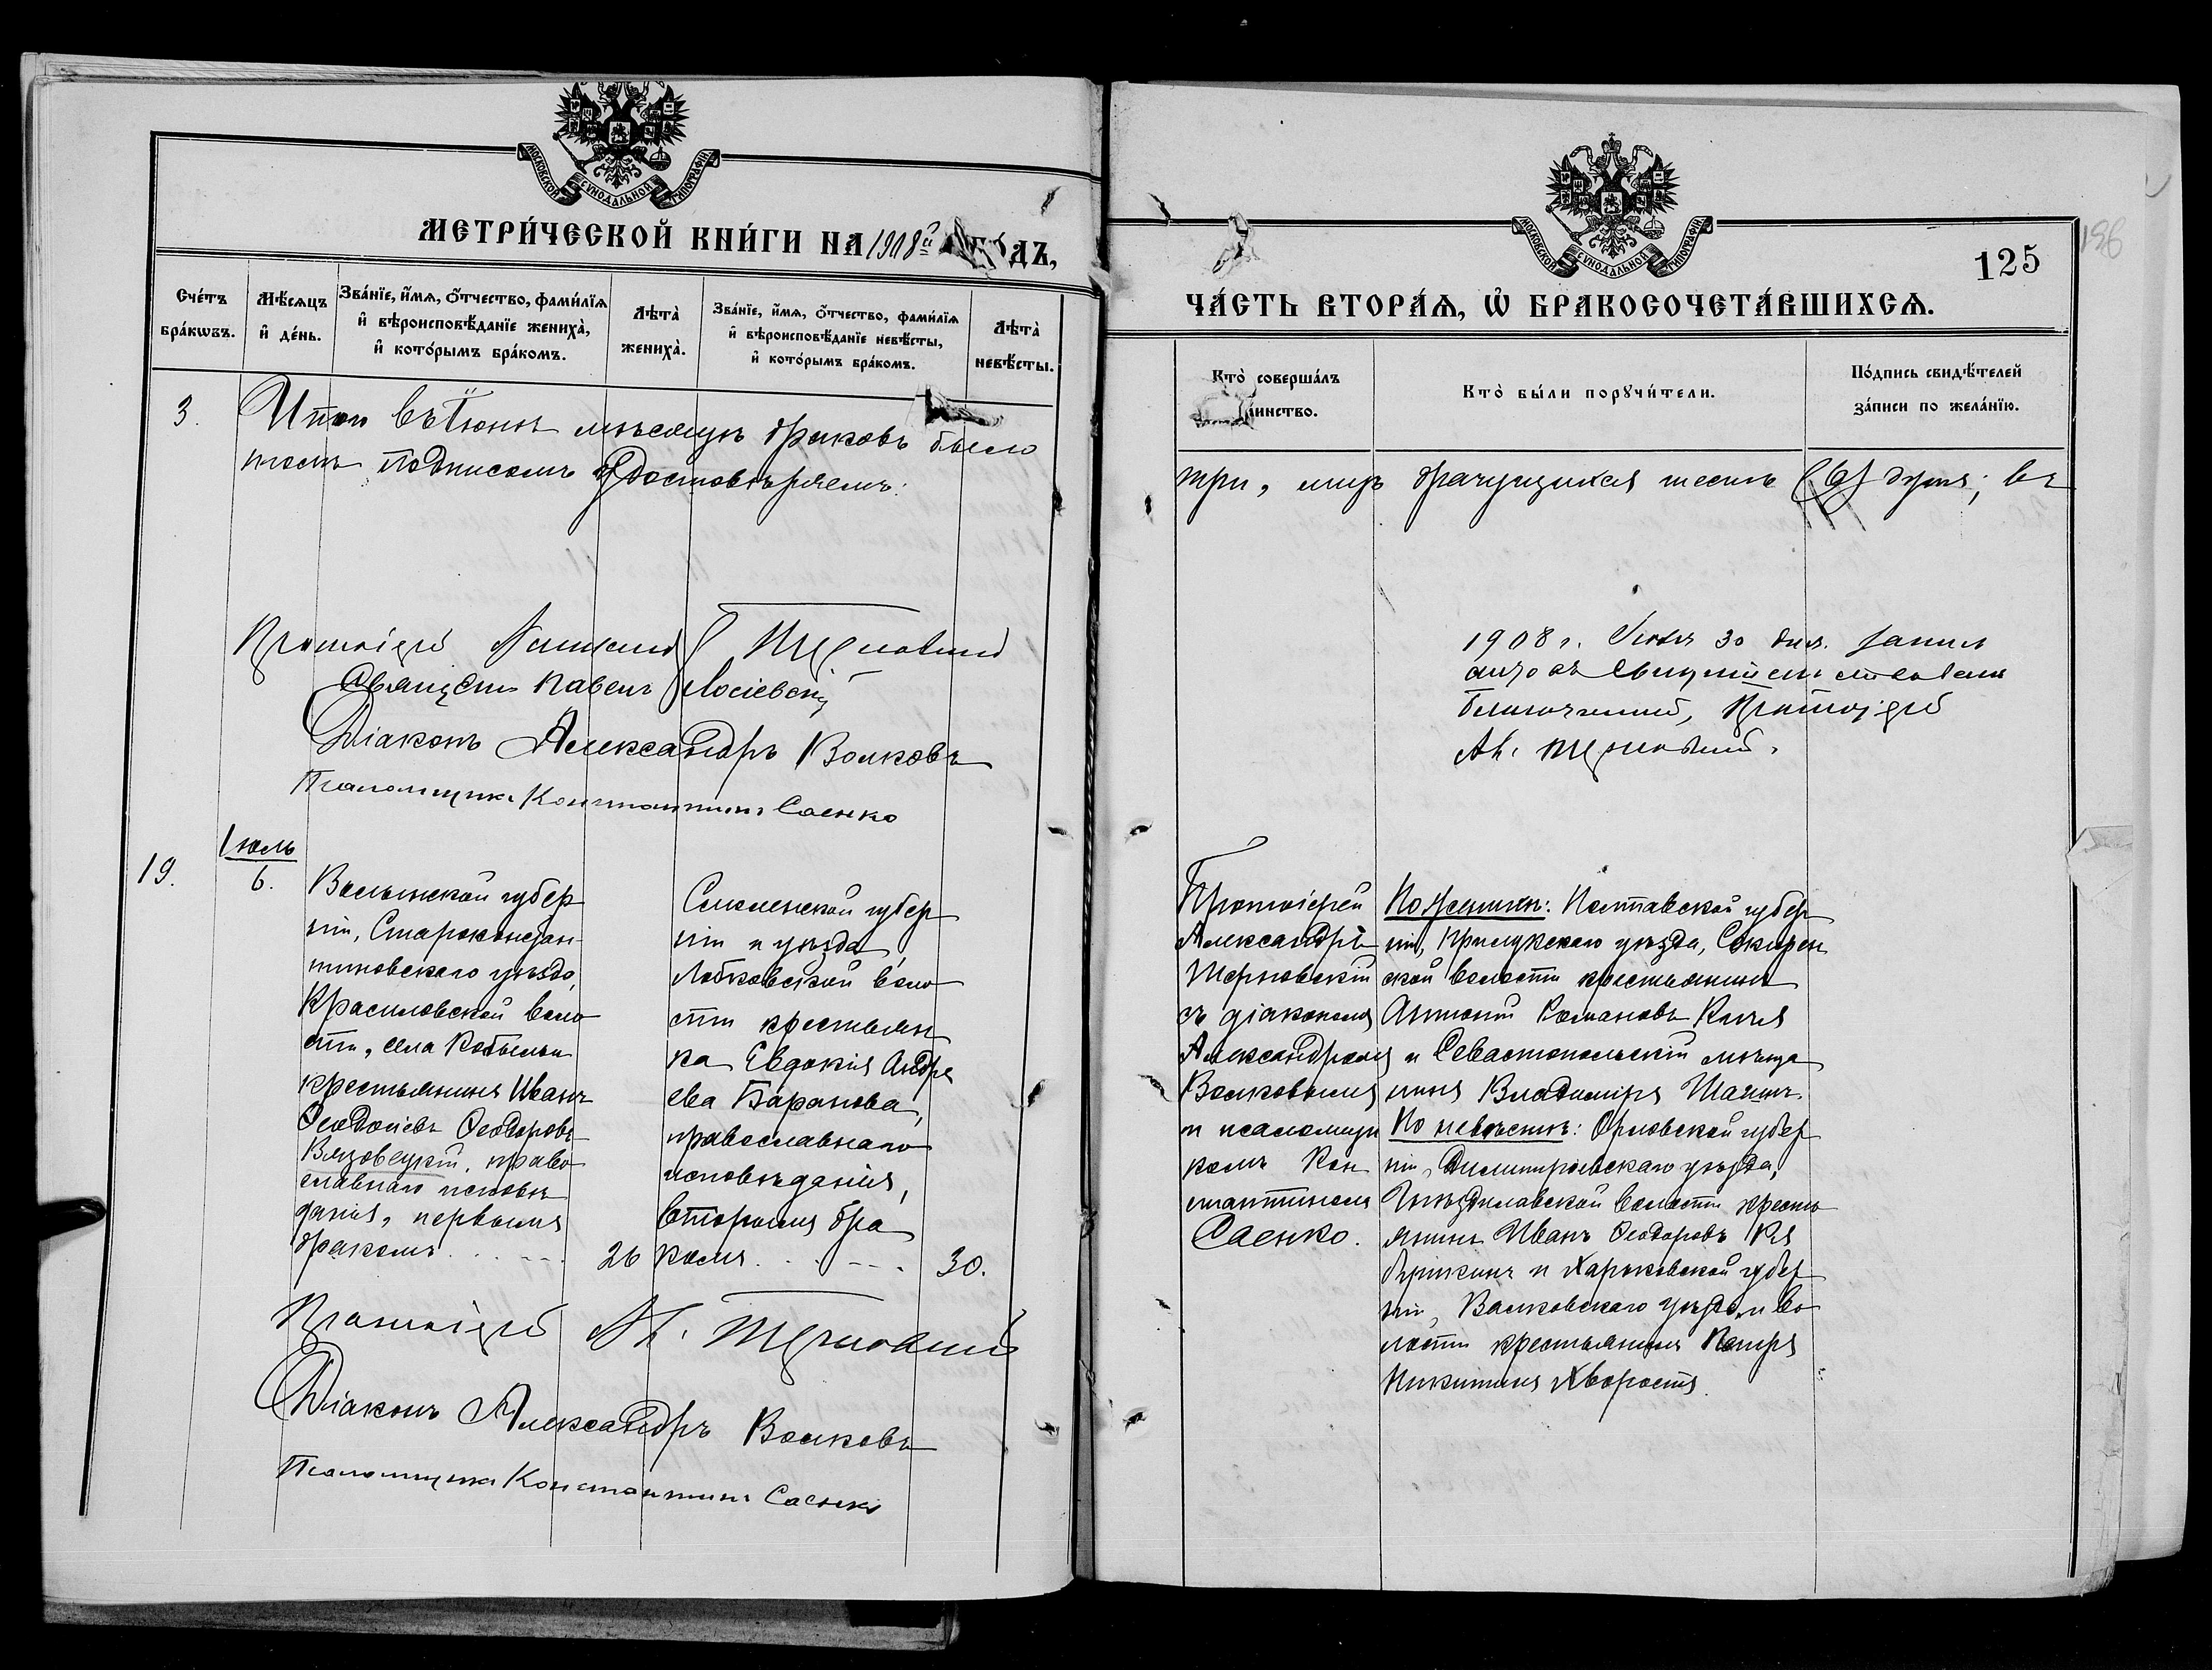 МОСКОВСКОЙ СУНОДАЛЬНОЙ ТИПОГРАФІИ
МЕТРИ́ЧЕСКОЙ КНИ́ГИ НА 1908й ГО́ДЪ,
Сче́тъ бра́кѡвъ.
Мѣ́сяцъ и҆ де́нь.
Зва́нїе, и҆́мѧ, ѻ҆́тчество, фами́лїѧ и҆ вѣроисповѣ́данїе жениха̀, и҆ кото́рымъ бра́комъ.
Лѣта̀ жениха̀.
Зва́нїе, и҆́мѧ, ѻ҆́тчество, фами́лїѧ и҆ вѣроисповѣ́данїе невѣ́сты, и҆ кото́рымъ бра́комъ.
Лѣта̀ невѣ́сты.
3.
Итого въ Іюнѣ мѣсяцѣ браковъ было
томъ подписомъ удостовѣряемъ:
Протоіерей Александръ Терновскій
Священ. Павелъ Лосіевскій
Діаконъ Александръ Волковъ
Псаломщикъ Константинъ Саенко
Іюль
19.
6.
Волынской губер
ніи, Староконстан
тиновскаго уѣзда,
Красиловской воло
сти, села Кобыльи
крестьянинъ Иванъ
Ѳеодосіевъ Ѳеодоровъ
Вязовецкій, право
славнаго исповѣ
данія, первымъ
бракомъ
26
Смоленской губер
ніи и уѣзда,
Лобковской воло
сти крестьян
ка Евдокія Андре
ева Баранова,
православнаго
исповѣданія,
вторымъ бра
комъ
30.
Протоіерей Ал. Терновскій
Діаконъ Александръ Волковъ
Псаломщикъ Константинъ Саенко
МОСКОВСКОЙ СУНОДАЛЬНОЙ ТИПОГРАФІИ
125
196
ЧА́СТЬ ВТОРА́Ѧ, Ѡ҆ БРАКОСОЧЕТА́ВШИХСѦ.
Кто̀ соверша́лъ таинство.
Кто̀ бы́ли порꙋчи́тели.
По́дпись свидѣ́телей за́писи по жела́нїю.
три, лицъ брачущихся шесть (6) душъ; въ
1908 г. Іюля 30 дня. Запись
сію свидѣтельствовалъ
Благочинный, Протоіерей
Ал. Терновскій.
Протоіерей
Александръ
Терновскій
съ діакономъ
Александромъ
Волковымъ
и псаломщи
комъ Кон
стантиномъ
Саенко.
По женихѣ: Полтавской губер
ніи, Прилукскаго уѣзда, Сокирен
ской волости крестьянинъ
Антоній Романовъ Кича
и Севастопольскій мѣща
нинъ Владиміръ Шашинъ.
По невѣстѣ: Орловской губер
ніи, Димитріевскаго уѣзда,
Гнѣздиловской волости кресть
янинъ Иванъ Ѳеодоровъ Кя
бришкинъ и Харьковской губер
ніи, Валковскаго уѣзда и во
лости крестьянинъ Петръ
Никитинъ Хворостъ.